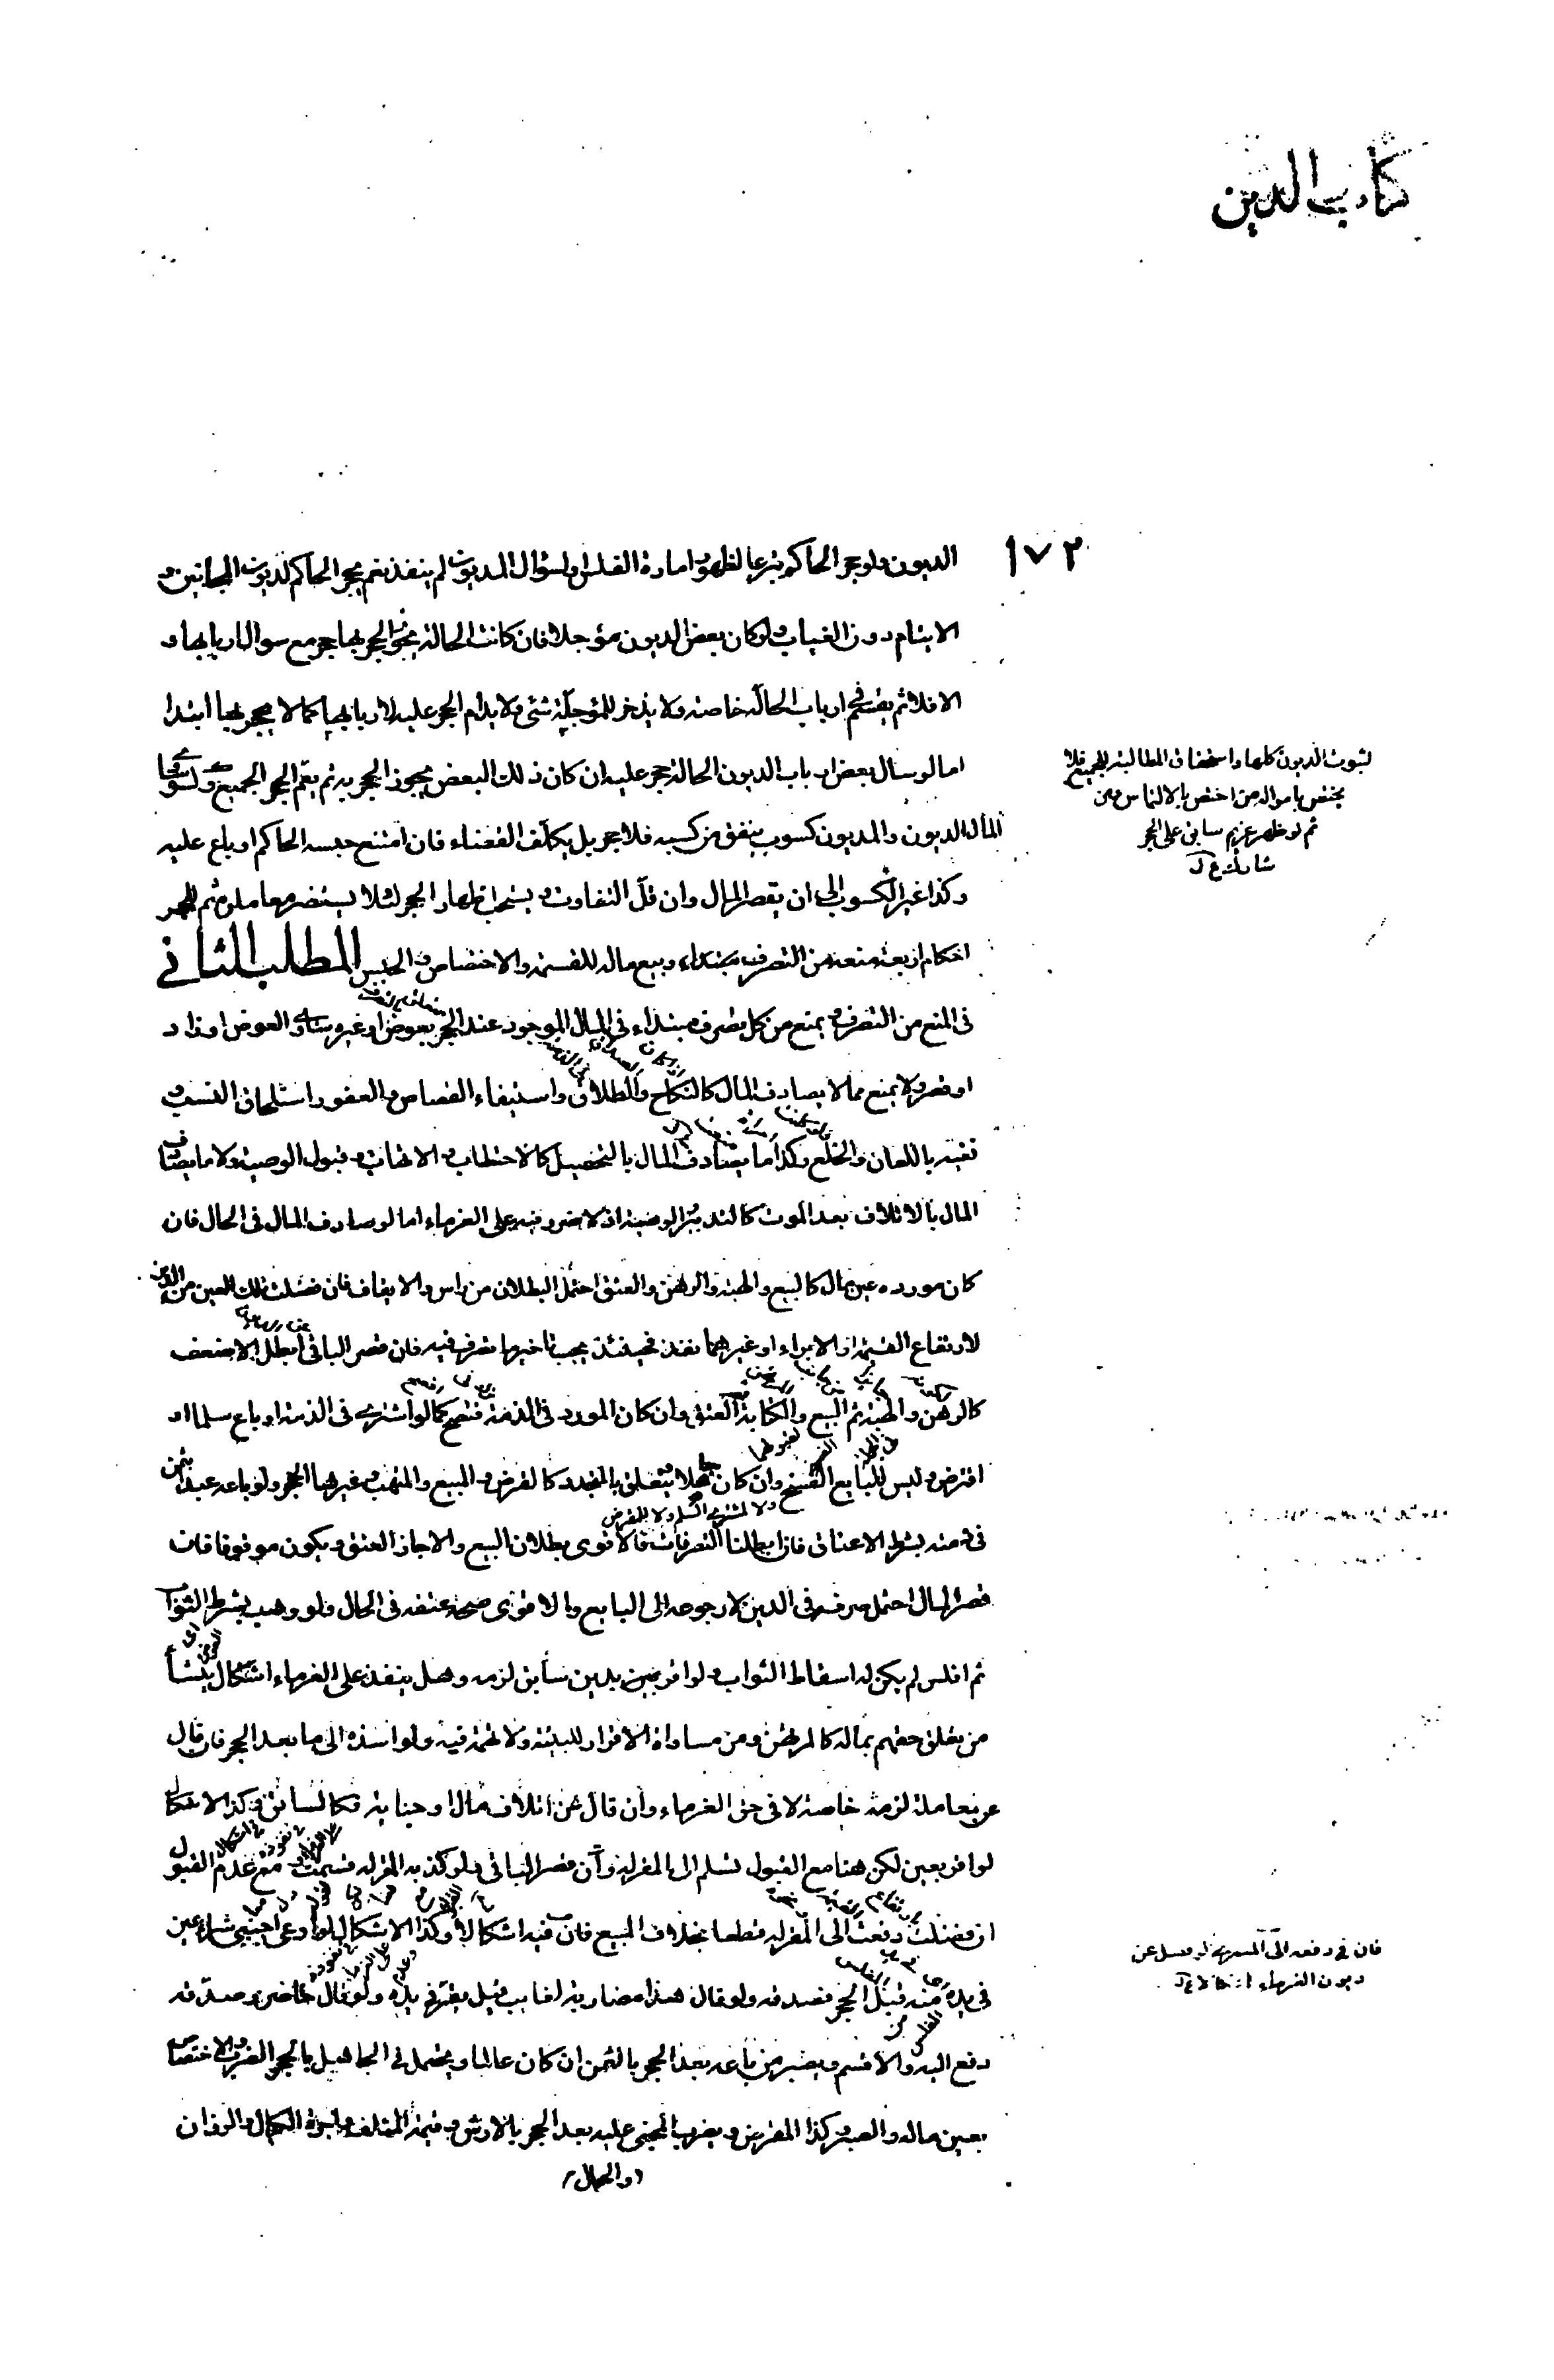 كتاب الدين
١٧٢
الديون ولو حجر الحاكم تبرعا لظهور امارة الفلس او لسؤال المديون لم ينفذ نعم يحجر الحاكم لديون المجانين و
الايتام دون الغياب ولو كان بعض الديون مؤجلا فان كانت الحالة يجوز الحجر بها حجر مع سؤال اربابها و
الا فلا ثم يقسم في ارباب الحالة خاصة ولا يذخر للمؤجلة شئ ولا يدام الحجر عليه لاربابها كما لا يحجر بها ابتدا
اما لو سال بعض ارباب الديون الحالة حجر عليه ان كان ذلك البعض يجوز الحجر به ثم يعم الحجر الجميع ولو ساوى
المال الديون والمديون كسوب ينفق من كسبه فلا حجر بل يكلف القضاء فان امتنع حبسه الحاكم او باع عليه
وكذا غير الكسوب الى ان يقصر المال وان قل التفاوت و يستحب اظهار الحجر لئلا يستضر معاملوه ثم للحجر
احكام اربعة منعه من التصرف مبتداء وبيع ماله للقسمة والاختصاص والحبس المطلب الثاني
في المنع من التصرف ويمنع من كل تصرف مبتداء في المال الموجود عند الحجر بعوض او غيره ساوى العوض او زاد
او قصر ولا يمنع مما لا يصادف المال كالنكاح والطلاق واستيفاء القصاص والعفو واستلحاق النسب و
نفيه باللعان والخلع وكذا ما يصادف المال بالتحصيل كالاحتطاب والاتهاب وقبول الوصية ولا ما يصادف
المال بالاتلاف بعد الموت كالتدبير والوصية اذ لا ضرر فيه على الغرماء اما لو صادف المال في الحال فان
كان مورده عين مال كالبيع والهبة والرهن والعتق احتمل البطلان من راس والايقاف فان فضلت تلك العين من الدين
لارتفاع القيمة او الابراء او غيرهما نفذ فحينئذ يجب تاخير ما تصرف فيه فان قصر الباقي ابطل الاضعف
كالرهن والهبة ثم البيع والكتابة ثم العتق وان كان المورد في الذمة فتصح كما لو اشترى في الذمة او باع سلما او
اقترض وليس للبايع الفسخ وان كان جاهلا ويتعلق بالمتجدد كالقرض والمبيع والمتهب وغيرها الحجر ولو باعه عبدا بثمن
ولا لمشتري السلم ولا للمقرض
في ذمته بشرط الاعتاق فان ابطلنا التصرفات فالاقوى بطلان البيع والا جاز العتق ويكون موقوفا فان
قصر المال احتمل صرفه في الدين لا رجوعه الى البايع والاقوى صحة عتقه في الحال ولو وهب بشرط الثواب
ثم افلس لم يكن له اسقاط الثواب ولو اقر بدين سابق لزمه وهل ينفذ على الغرماء اشكال ينشأ
من تعلق حقهم بماله كالرهن ومن مساواة الاقرار للبينة ولا تهمة فيه ولو اسنده الى ما بعد الحجر فان قال
عن معاملة لزمه خاصة لا في حق الغرماء وان قال عن اتلاف مال او جناية فكالسابق وكذا الاشكال
لو اقر بعين لكن هنا مع القبول تسلم الى المقر له وان قصر الباقي ولو كذبه المقر له قسمت مع عدم القبول
ان فضلت دفعت الى المقر له قطعا بخلاف المبيع فان فيه اشكالا وكذا الاشكال لو ادعى اجنبي شراء عين
في يده منه قبل الحجر فصدقه ولو قال هذا مضاربة لغايب قيل يقر في يده ولو قال لحاضر وصدقه
دفع اليه والا قسم ويصبر من باعه بعد الحجر بالثمن ان كان عالما ويحتمل في الجاهل بالحجر الضرب والاختصاص
بعين ماله والصبر وكذا المقرض ويضرب المجني عليه بعد الحجر بالارش وقيمة المتلف واجرة الكيال والوزان
(والحمال)
لثبوت الديون كلها واستحقاق المطالبة للجميع فلا
يختص بامواله من اختص بالالتماس ومن
ثم لو ظهر غريم سابق على الحجر
شارك ع ل